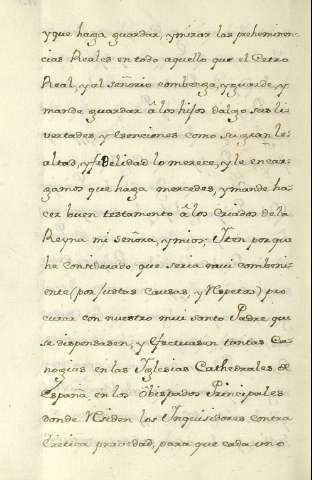 y que haga guardar, y mirar las preheminen-
cias Reales en todo aquello que el Cetro
Real, y al señorio combenga, y guarde, y
mande guardar â los hijos dalgo sus li-
vertades, y Esenciones como su gran le-
altad, y fidelidad lo merece, y le encar-
gamos que haga mercedes, y mande ha-
cer buen testamento â los Criados de la
Reyna mi señora, y mios: Iten por que
he considerado que seria mui combeni-
ente (por justas causas, y respetos) pro
curar con nuestro mui santo Padre que
se dispensasen, y efectuasen tantas Ca-
nogias en las Iglesias Cathedrales de
España en los Obispados Principales
donde residen los Inquisidores contra
pravedad, para que cada uno